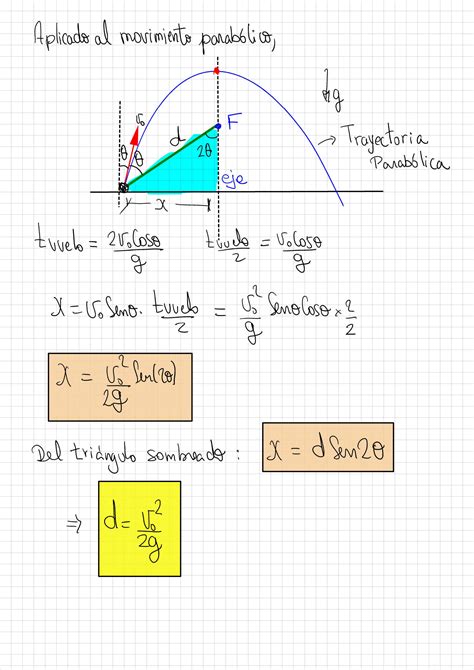 Aplicado al movimiento parabólico,
g
v₀
d
F
θ θ
2θ
→ Trayectoria
Parabólica
eje
x
t vuelo = 2v₀Cosθ / g    t vuelo / 2 = v₀Cosθ / g
x = v₀ Senθ · t vuelo / 2 = v₀² / g Senθ Cosθ × 2 / 2
x = v₀² / 2g Sen(2θ)
Del triángulo sombreado : x = d Sen2θ
⇒ d = v₀² / 2g